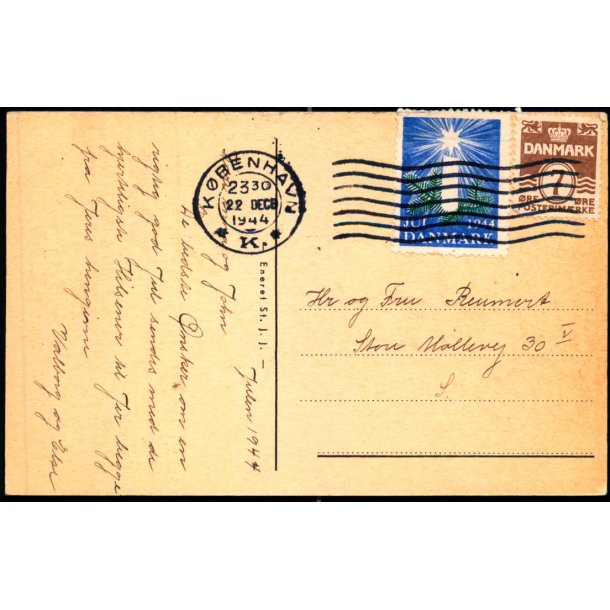 KØBENHAVN
2330
22 DECB
1944
* K. *
JUL 1944
DANMARK
DANMARK
7
ØRE ØRE
POSTFRIMÆRKE
Eneret St. J. J. –
Julen 1944
og John
De bedste Ønsker om en
rigtig god Jul sendes med de
hjerteligste Hilsener til Jer begge
fra Jeres hengivne
Valborg og Else
Hr og Fru Reumert
Store Møllevej 30 V
S.